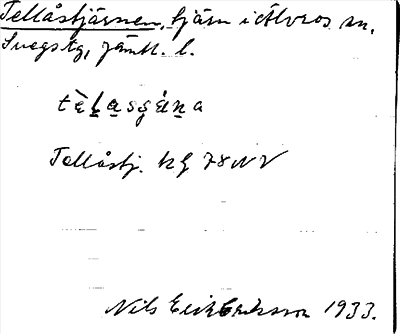 Tellåstjärnen, tjärn i Älvros sn.
Svegs tg, Jämtl. l.
Tellåstj. kg 78 NV
Nils Erik Eriksson 1933.